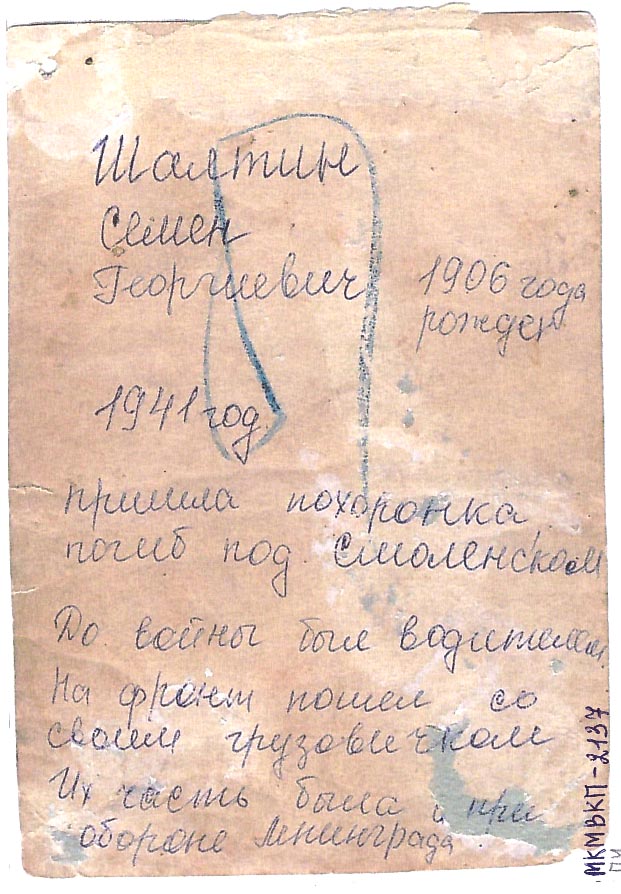 Шалтин
Семен
Георгиевич
1906 года
рожден
1941 год
пришла похоронка
погиб под Смоленском
До войны был водителем.
На фронт пошел со
своим грузовичком
Их часть была и при
обороне Лнинграда.
МКМВКП-2137
ПИ